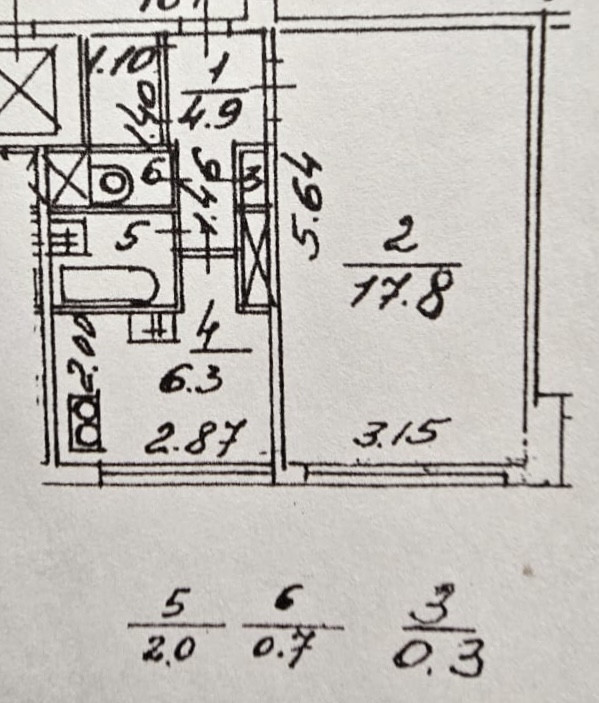 1.10
1
4.9
1.40
6
1.46
3
5.64
5
2
17.8
4
6.3
2.00
2.87
3.15
5 6 3
2.0 0.7 0.3